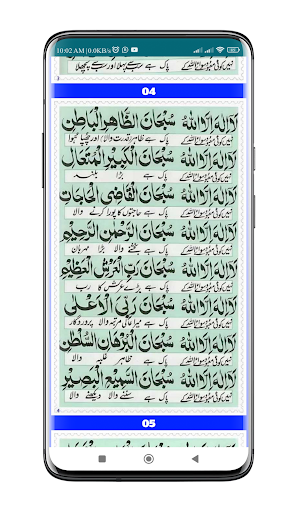 10:02 AM | 0.0KB/s
نہیں کوئی معبود سوائے اللہ کے پاک ہے سب سے پہلا اور سب سے پچھلا
04
لَا اِلٰهَ اِلَّا اللهُ سُبْحَانَ الظَّاهِرِ الْبَاطِنِ
نہیں کوئی معبود سوائے اللہ کے پاک ہے ظاہر قدرت والا اور چھپا ہوا
لَا اِلٰهَ اِلَّا اللهُ سُبْحَانَ الْكَبِيْرِ الْمُتَعَالِ
نہیں کوئی معبود سوائے اللہ کے پاک ہے بڑا بلند
لَا اِلٰهَ اِلَّا اللهُ سُبْحَانَ الْقَاضِي الْحَاجَاتِ
نہیں کوئی معبود سوائے اللہ کے پاک ہے حاجتوں کا پورا کرنے والا
لَا اِلٰهَ اِلَّا اللهُ سُبْحَانَ الرَّحْمٰنِ الرَّحِيْمِ
نہیں کوئی معبود سوائے اللہ کے پاک ہے بخشنے والا بڑا مہربان
لَا اِلٰهَ اِلَّا اللهُ سُبْحَانَ رَبِّ الْعَرْشِ الْعَظِيْمِ
نہیں کوئی معبود سوائے اللہ کے پاک ہے بڑے عرش کا رب
لَا اِلٰهَ اِلَّا اللهُ سُبْحَانَ رَبِّيَ الْاَعْلٰى
نہیں کوئی معبود سوائے اللہ کے پاک ہے میرا عالی مرتبہ والا پروردگار
لَا اِلٰهَ اِلَّا اللهُ سُبْحَانَ الْبُرْهَانِ السُّلْطَانِ
نہیں کوئی معبود سوائے اللہ کے پاک ہے ظاہر غلبہ والا
لَا اِلٰهَ اِلَّا اللهُ سُبْحَانَ السَّمِيْعِ الْبَصِيْرِ
نہیں کوئی معبود سوائے اللہ کے پاک ہے سننے والا دیکھنے والا
05